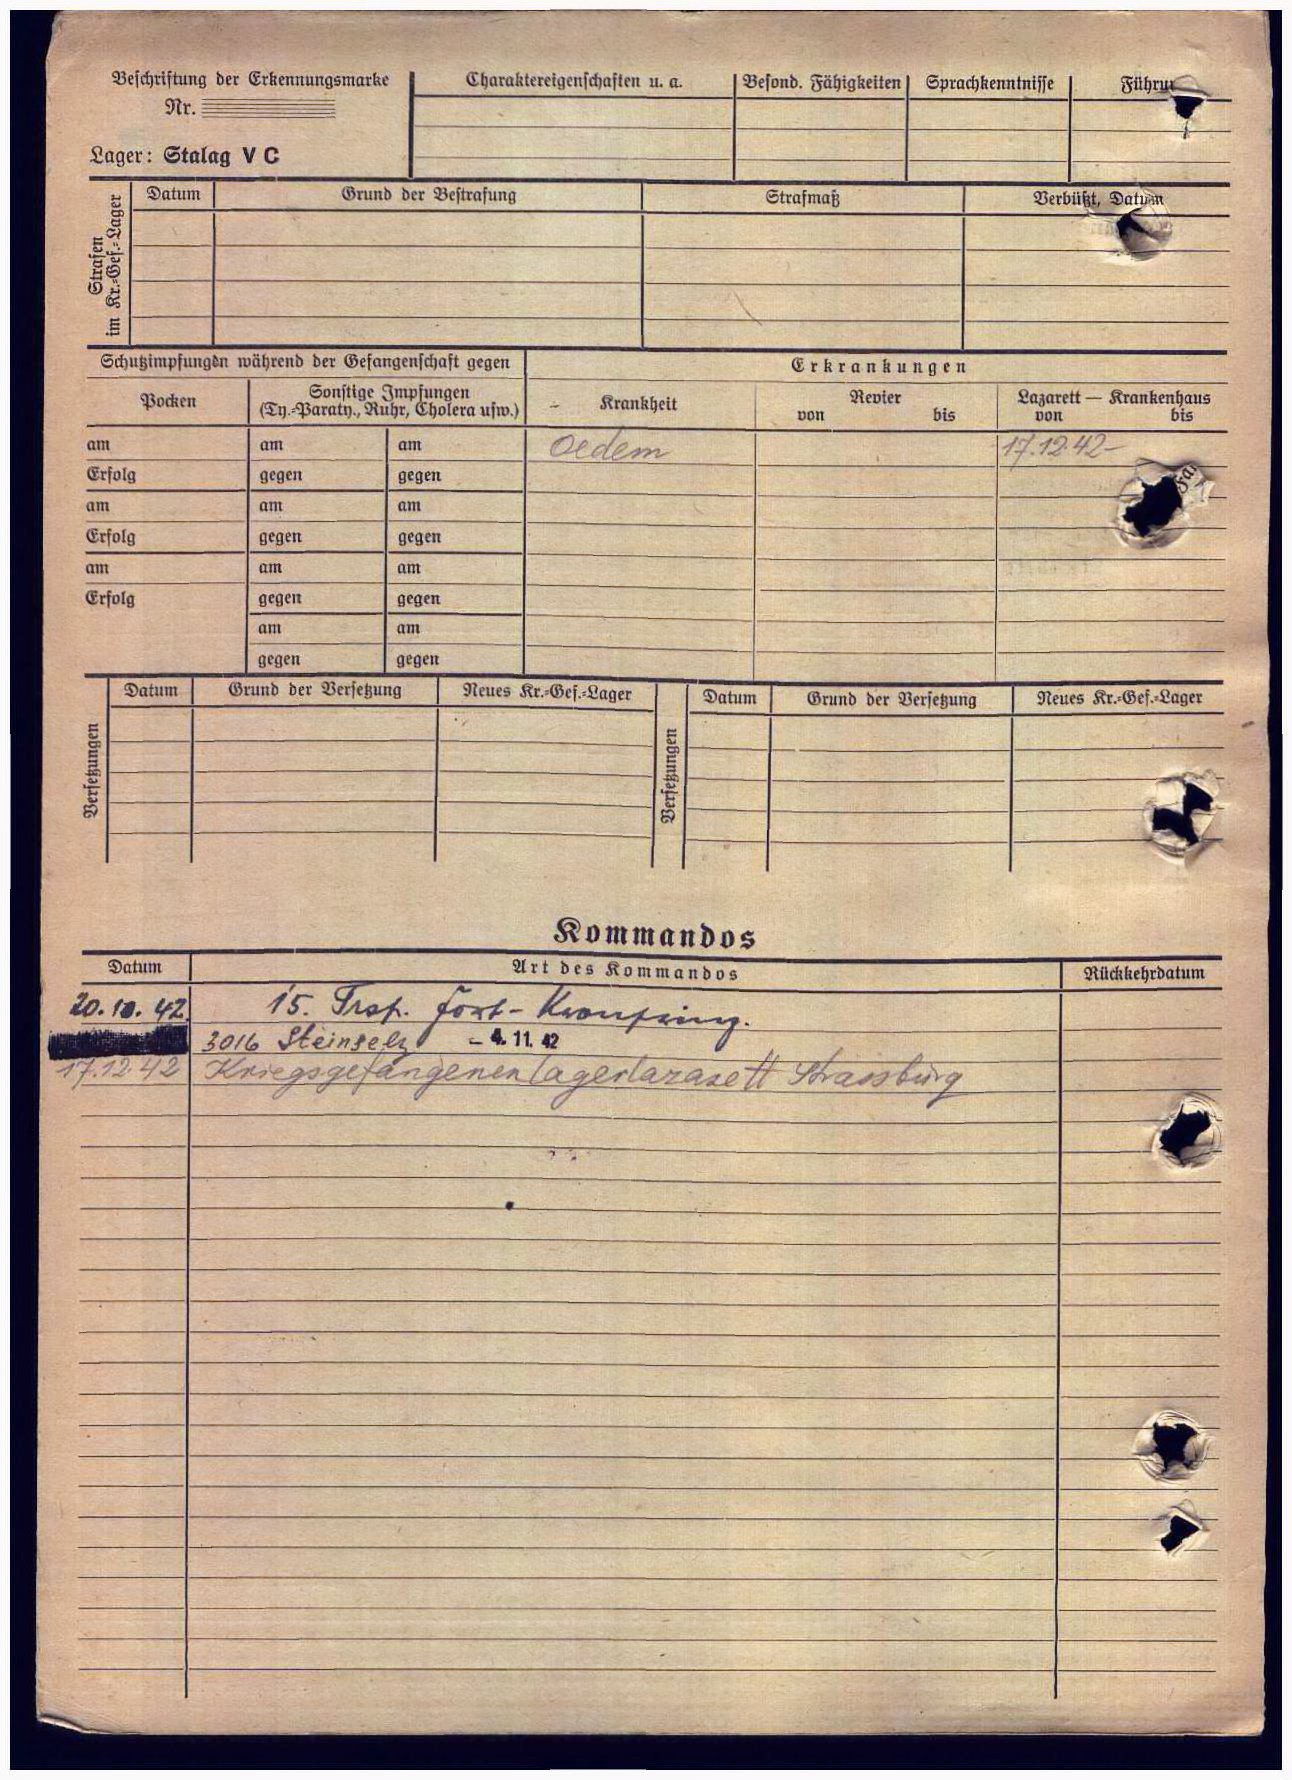 Beschriftung der Erkennungsmarke
Nr.
Lager: Stalag V C
Charaktereigenschaften u. a.
Besond. Fähigkeiten
Sprachkenntnisse
Strafen
im Kr.=Gef.=Lager
Datum
Grund der Bestrafung
Strafmaß
Verbüßt, Datum
Schutzimpfungen während der Gefangenschaft gegen
Erkrankungen
Pocken
Sonstige Impfungen
(Ty.=Paraty., Ruhr, Cholera usw.)
Krankheit
Revier
von bis
Lazarett — Krankenhaus
von bis
am am am Oedem 17.12.42-
Erfolg gegen gegen
am am am
Erfolg gegen gegen
am am am
Erfolg gegen gegen
am am
gegen gegen
Versetzungen
Datum Grund der Versetzung Neues Kr.=Gef.=Lager
Versetzungen
Datum Grund der Versetzung Neues Kr.=Gef.=Lager
Kommandos
Datum Art des Kommandos Rückkehrdatum
20.10.42. 15. Trsp. Fort-Kronprinz.
3016 Steinselz - 4.11.42
17.12.42 Kriegsgefangenenlagerlazarett Strassburg